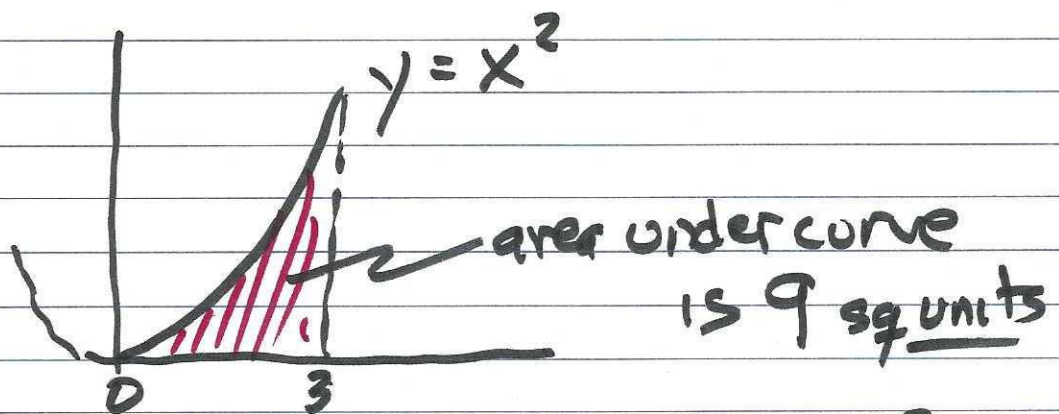 y = x²
area under curve
is 9 sq units
0 3